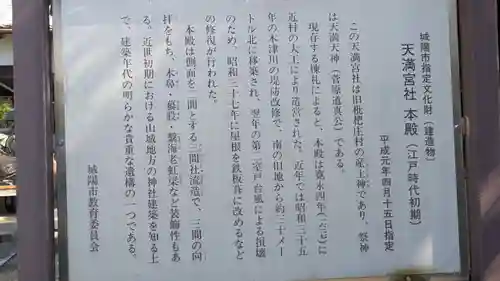 城陽市指定文化財(建造物)
天満宮社 本殿(江戸時代初期)
平成元年四月十五日指定
この天満宮社は旧枇杷庄村の産土神であり、祭神
は天満天神(菅原道真公)である。
現存する棟札によると、本殿は寛永四年(一六二七)に
近村の大工により造営された。近年では昭和三十五
年の木津川の堤防改修で、南の旧地から約三十メー
トル北に移築され、翌年の第二室戸台風による損壊
のため、昭和三十七年に屋根を鉄板葺に改めるなど
の修復が行われた。
本殿は側面を二間とする三間社流造で、三間の向
拝をもち、木鼻・蟇股・繋海老虹梁など装飾性もあ
る。近世初期における山城地方の神社建築を知る上
で、建築年代の明らかな貴重な遺構の一つである。
城陽市教育委員会